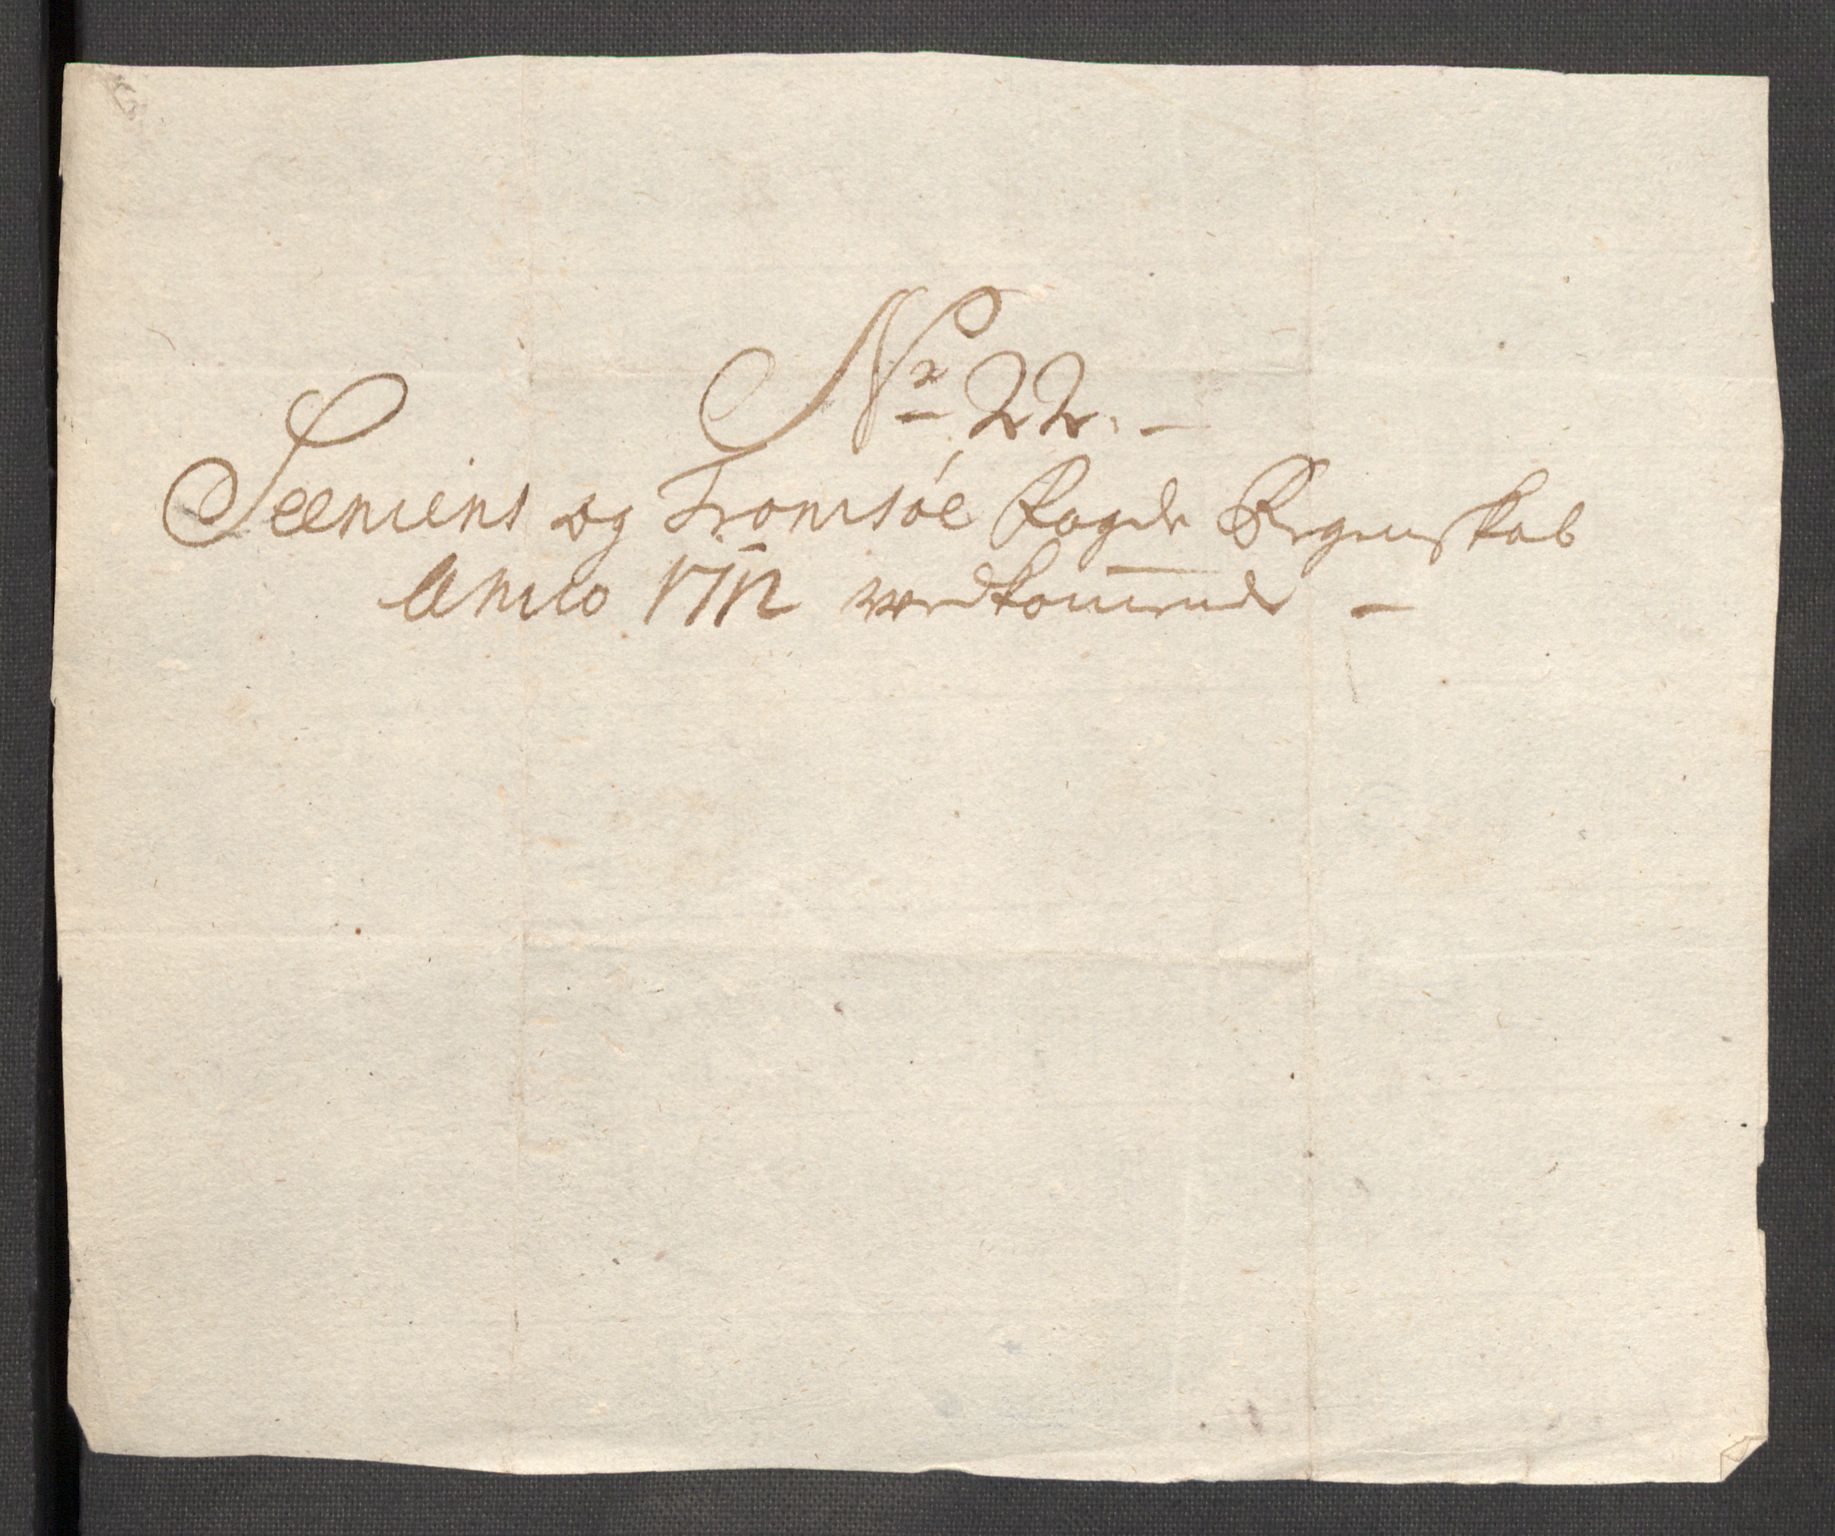 Nr 22. –
Seeniens og Tromsøe Fogde Regenskab
Anno 1712 vedkommende –